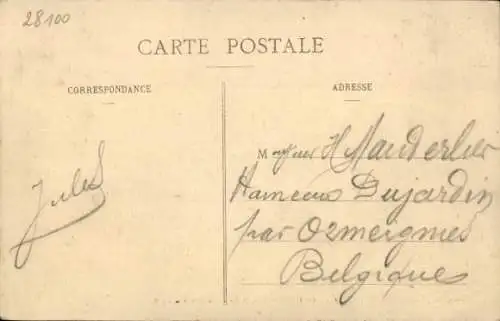 28100
CARTE POSTALE
CORRESPONDANCE
ADRESSE
Monsieur H Manderlier
Hameau Dujardin
par Ormeignies
Belgique
Jules